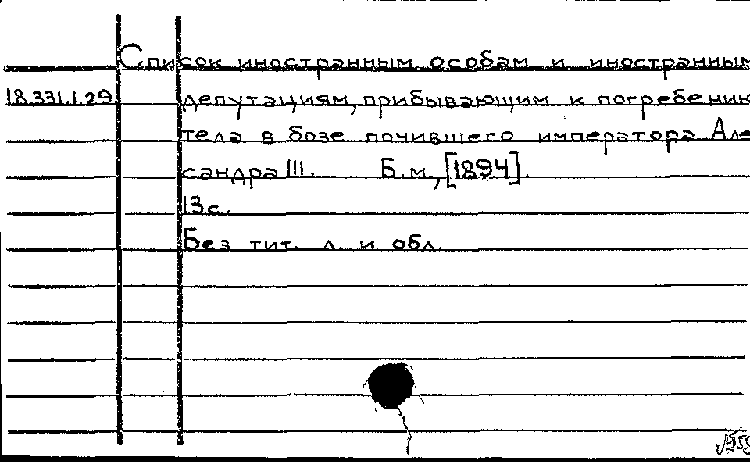 Список иностранным особам и иностранным
18.331.1.29
депутациям, прибывающим к погребению
тела в бозе почившего императора Але
сандра III. Б.м., [1894].
13 с.
Без тит. л. и обл.